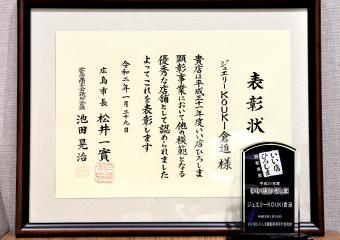 表彰状
ジュエリーKOUKI倉迫 様
貴店は平成三十一年度いい店ひろしま
顕彰事業において他の模範となる
優秀な店舗として認められました
よってこれを表彰します
令和二年一月二十九日
広島市長 松井一實
広島商工会議所会頭 池田晃治
いい店
ひろしま
顕彰事業
平成31年度
いい店ひろしま
ジュエリーKOUKI倉迫